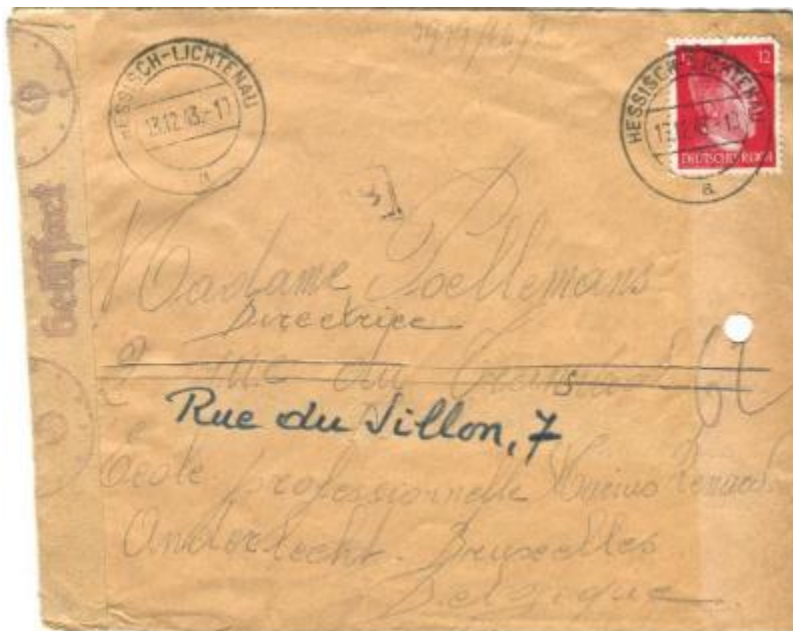 HESSISCH-LICHTENAU
13.12.43.-17
a
12
HESSISCH-LICHTENAU
a
DEUTSCHES REICH
Geöffnet
Madame Poellemans
Directrice
rue du
Rue du Sillon, 7
Ecole professionnelle Marius Renard
Anderlecht. Bruxelles
Belgique